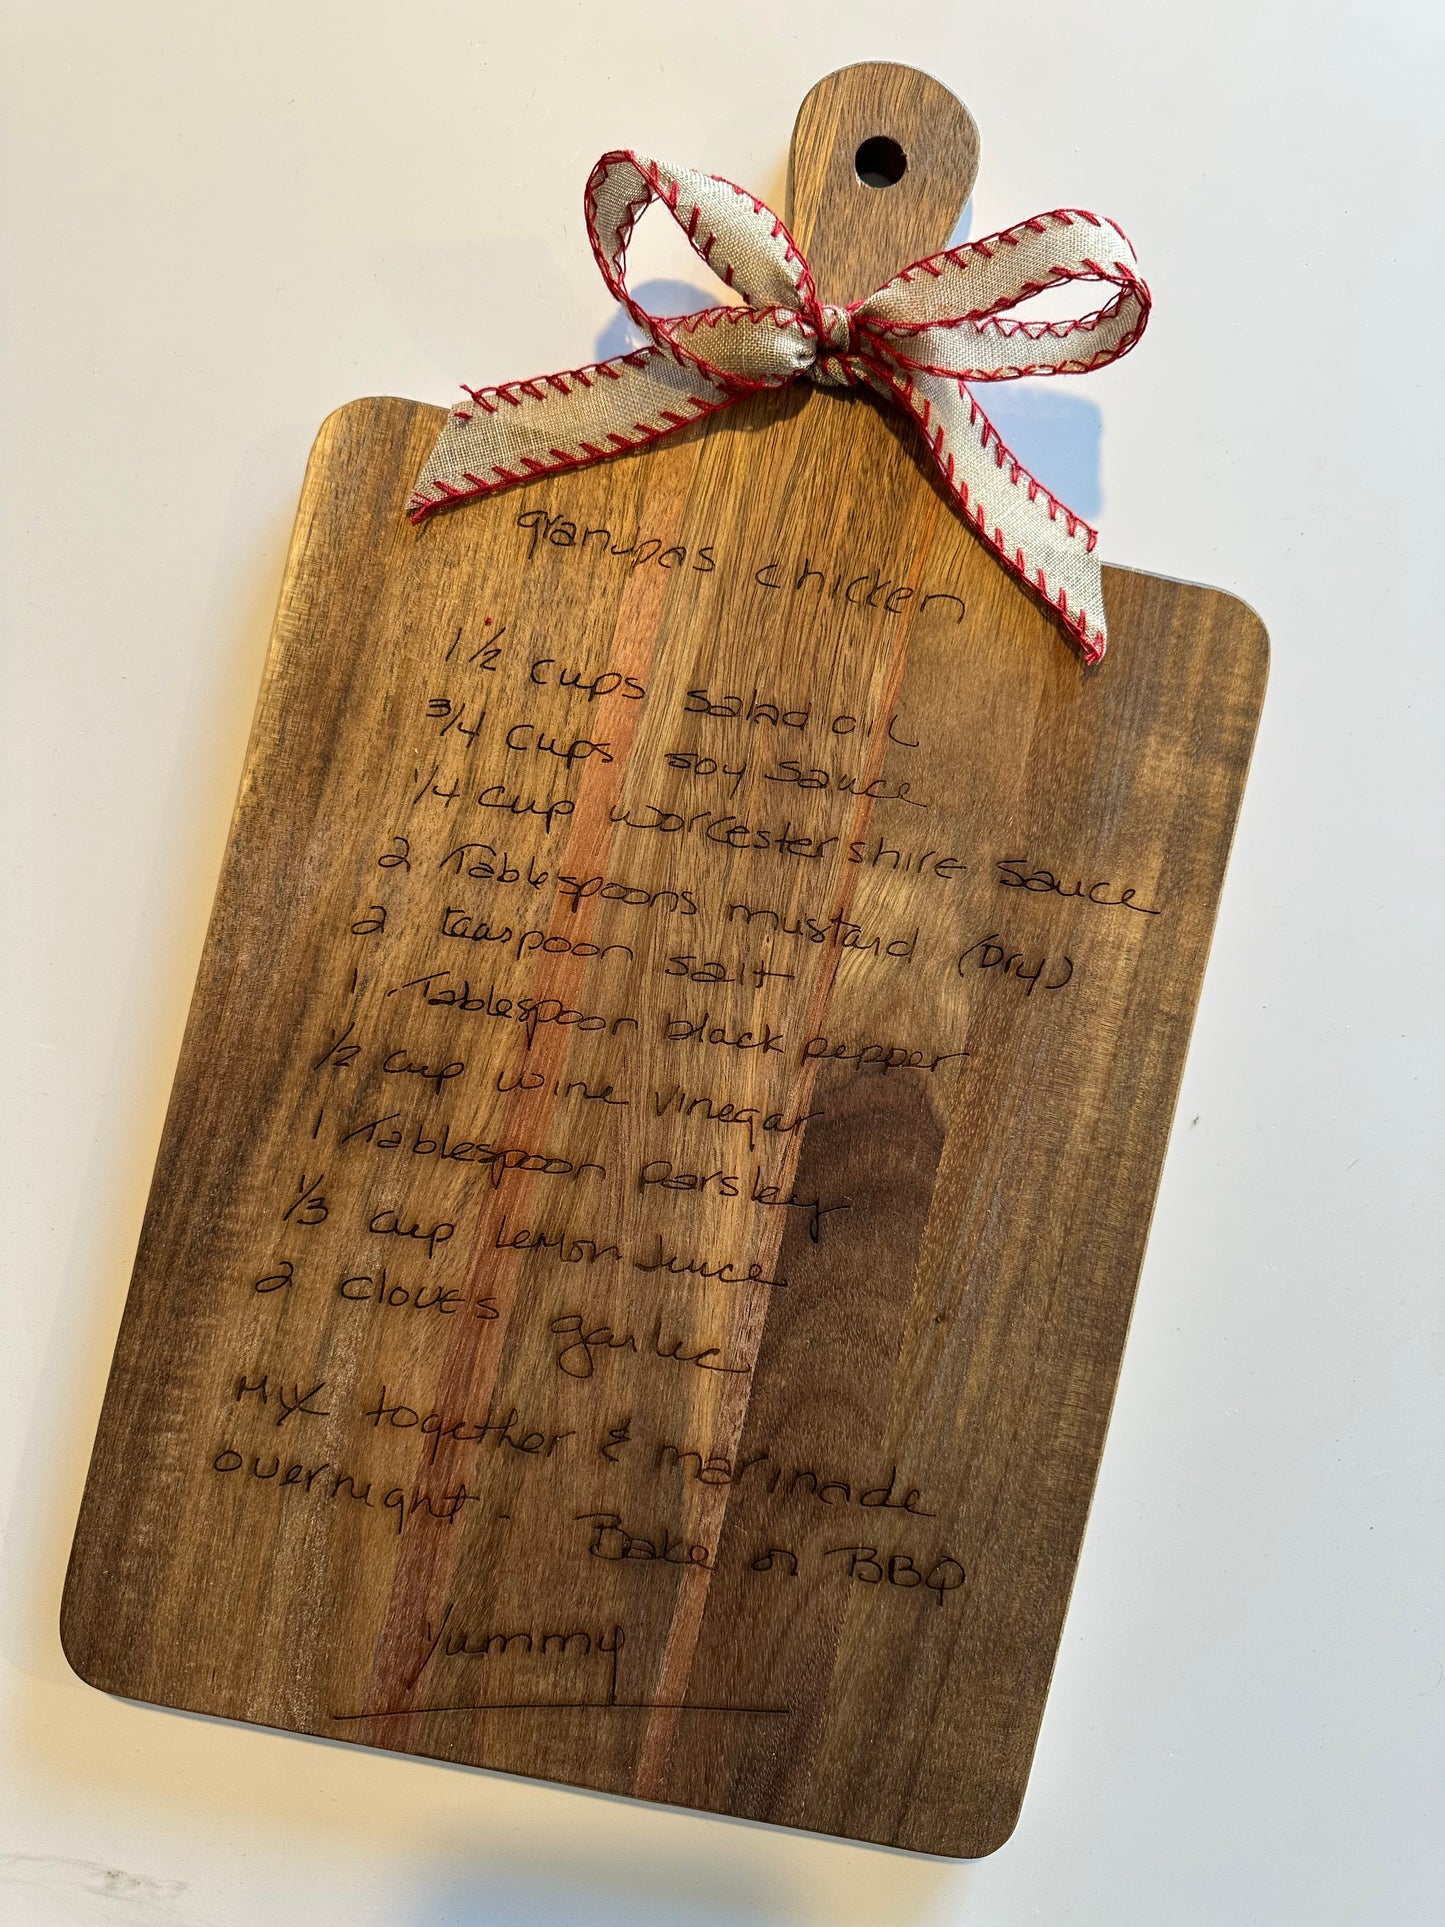 grandpas chicken
1 1/2 cups salad oil
3/4 cups soy sauce
1/4 cup worcestershire sauce
2 Tablespoons mustard (Dry)
2 teaspoon salt
1 Tablespoon black pepper
1/2 cup wine vinegar
1 Tablespoon parsley
1/3 cup Lemon Juice
2 cloves garlic
Mix together & marinade
overnight. Bake or BBQ
Yummy